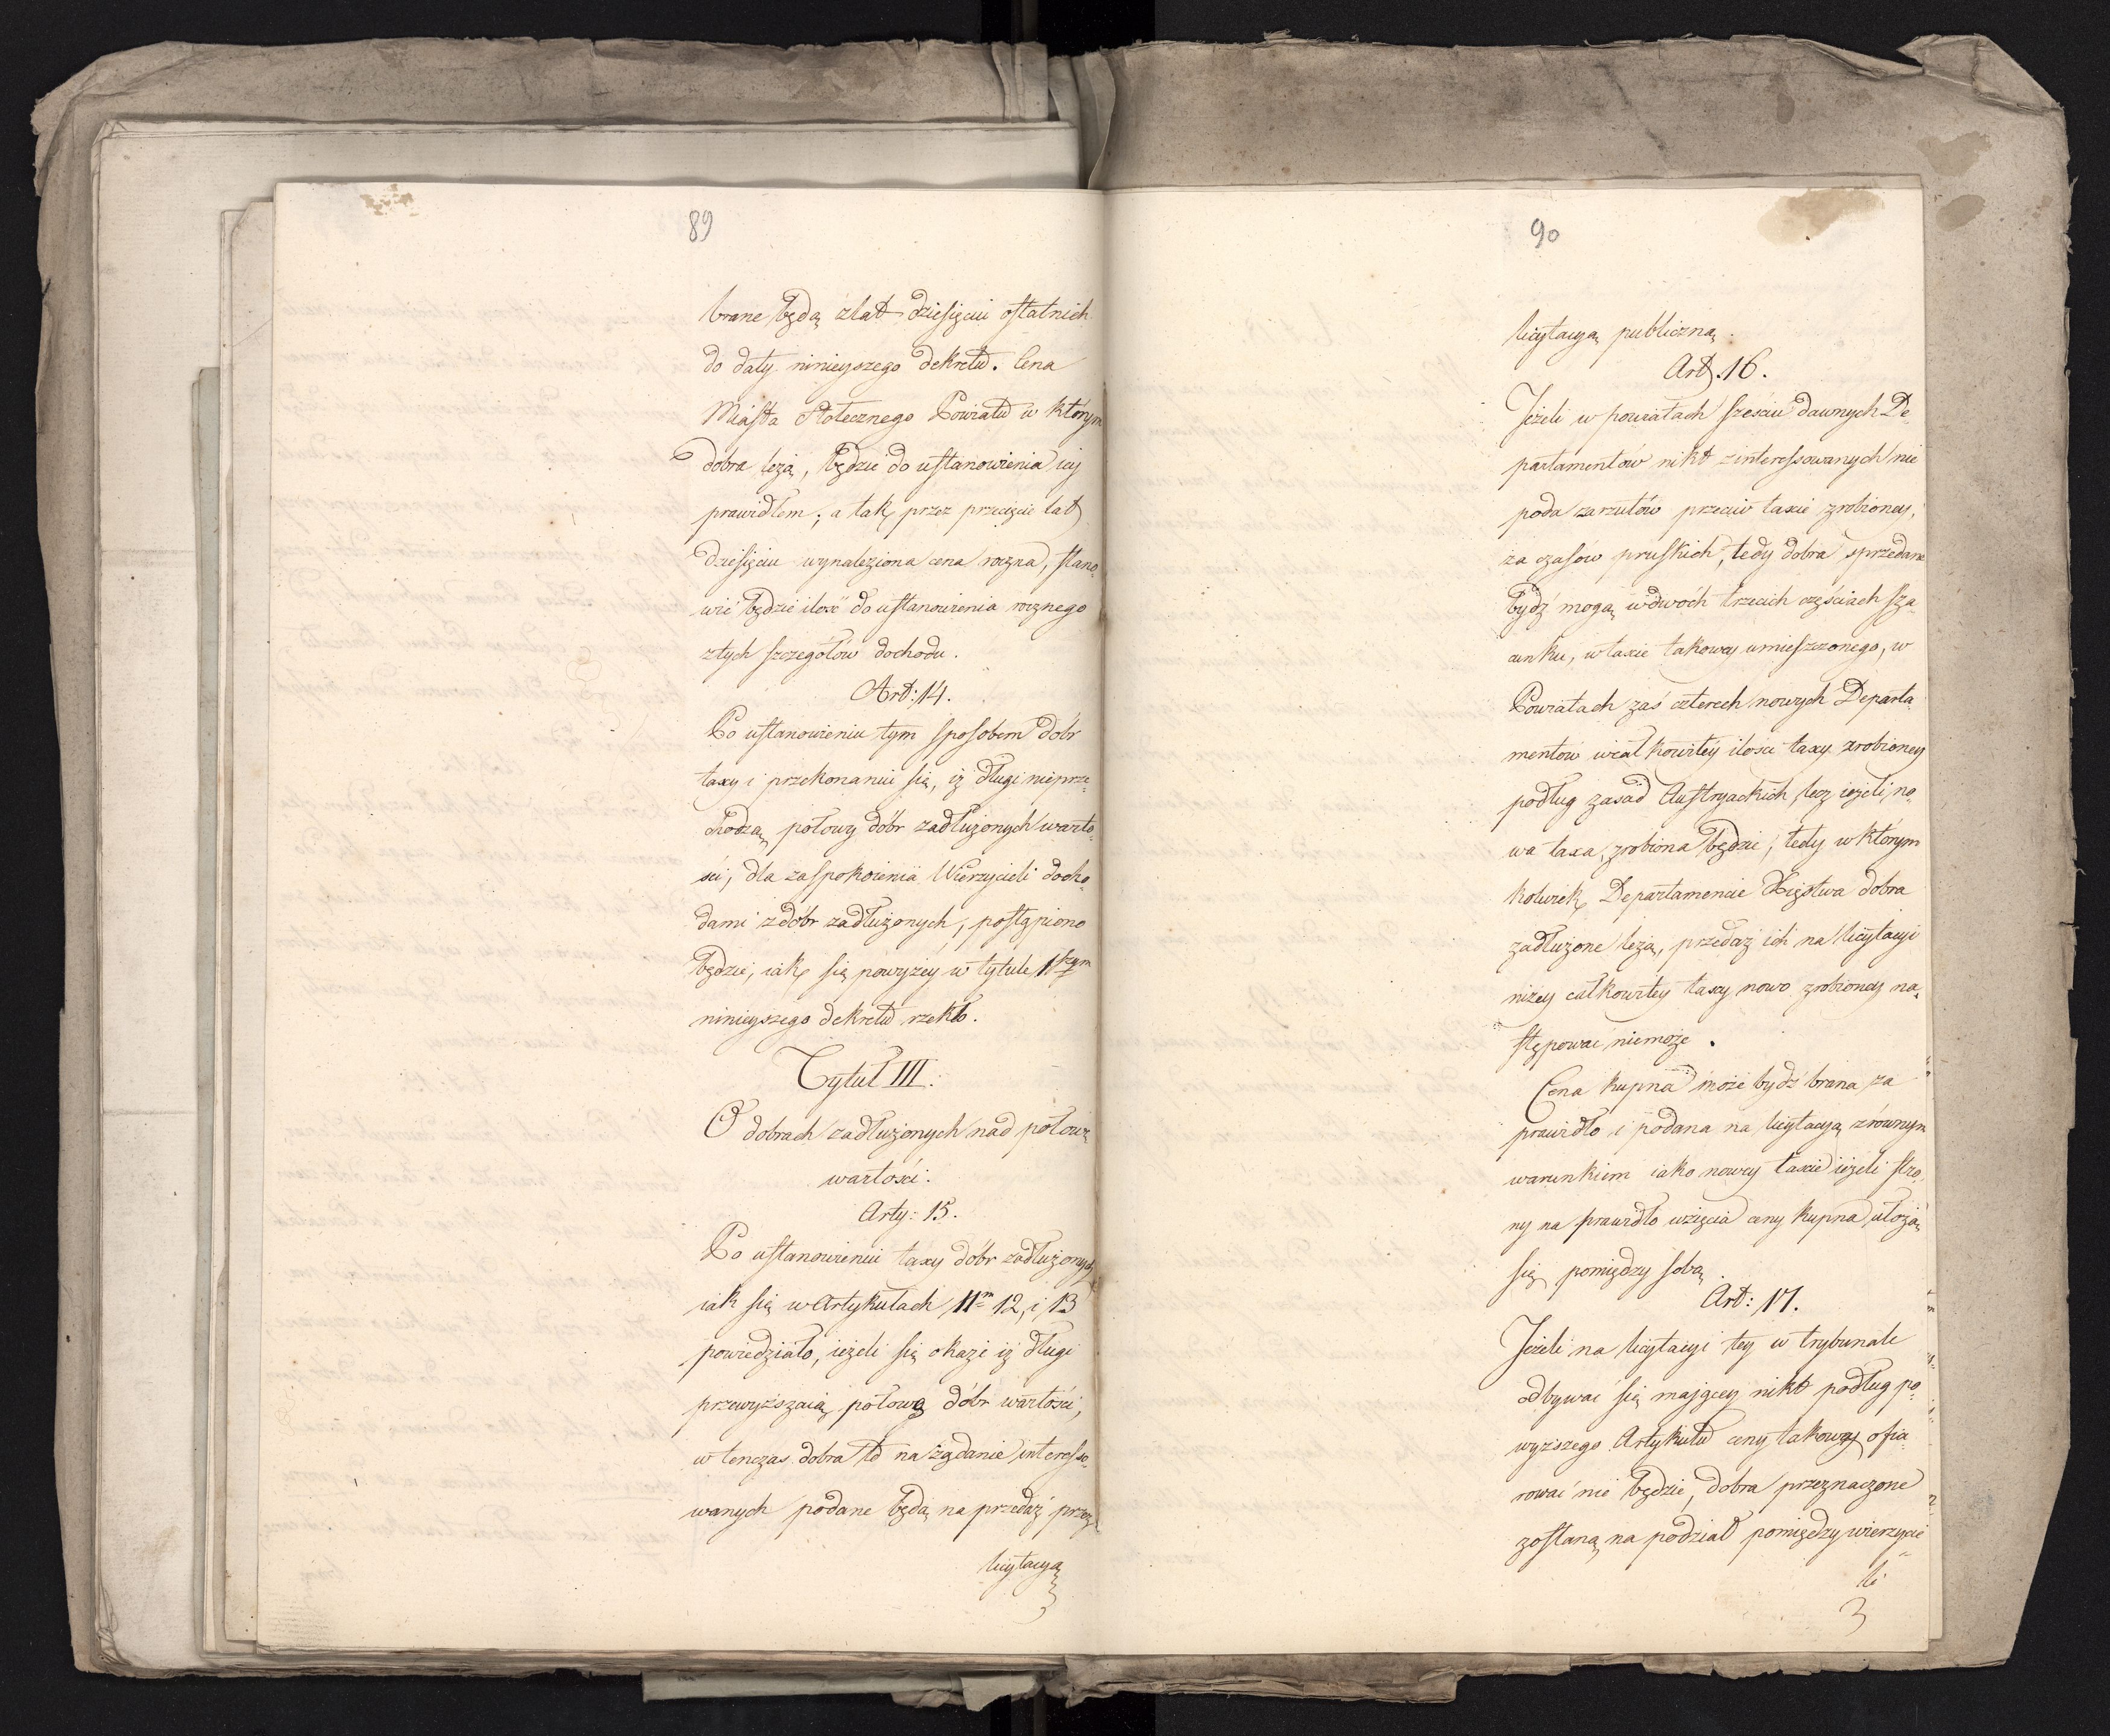 89
brane będą z lat dziesięciu ostatnich
do daty ninieyszego dekretu. Cena
Miasta Stołecznego Powiatu w którym
dobra leżą, będzie do ustanowienia iey
prawidłem; a tak przez przecięcie lat
dziesięciu wynaleziona cena roczna, stano-
wić będzie ilość do ustanowienia rocznego
z tych szczegółów dochodu.
Art: 14.
Po ustanowieniu tym sposobem dóbr
taxy i przekonaniu się, iż długi nieprze-
chodzą połowy dóbr zadłużonych warto-
ści, dla zaspokoienia Wierzycieli docho-
dami z dóbr zadłużonych, postąpiono
będzie, iak się powyżéy w tytule 1szym
ninieyszego dekretu rzekło.
Tytuł III.
O dobrach zadłużonych nad połowę
wartości.
Arty: 15.
Po ustanowieniu taxy dóbr zadłużonych
iak się w Artykułach 11m 12, i 13
powiedziało, ieżeli się okaże iż długi
przewyższaią połowę dóbr wartości,
w tenczas dobra te na żądanie interesso-
wanych podane będą na przedaż przez
licytacyą
90
licytacyą publiczną.
Art. 16.
Jeżeli w powiatach sześciu dawnych De-
partamentów nikt z interessowanych nie
poda zarzutów przeciw taxie zrobioney,
za czasów pruskich, tedy dobra sprzedane
bydź mogą w dwóch trzecich częściach sza-
cunku, w taxie takowey umieszczonego, w
Powiatach zaś czterech nowych Departa-
mentów w całkowitey ilości taxy zrobioney
podług zasad Austryackich, lecz ieżeli no-
wa taxa zrobiona będzie, tedy w którym
kolwiek Departamencie Xięstwa dobra
zadłużone leżą, przedaż ich na licytacyi
niżey całkowitey taxy nowo zrobioney na-
stępować niemoże.
Cena kupna może bydź brana za
prawidło i podana na licytacyą z równym
warunkiem iako nowey taxie ieżeli stro-
ny na prawidło wzięcia ceny kupna ułożą
się pomiędzy sobą.
Art: 17.
Jeżeli na licytacyi tey w trybunale
odbywać się maiącey nikt podług po-
wyższego Artykułu ceny takowey ofia-
rować nie będzie, dobra przeznaczone
zostaną na podział pomiędzy wierzycie-
li